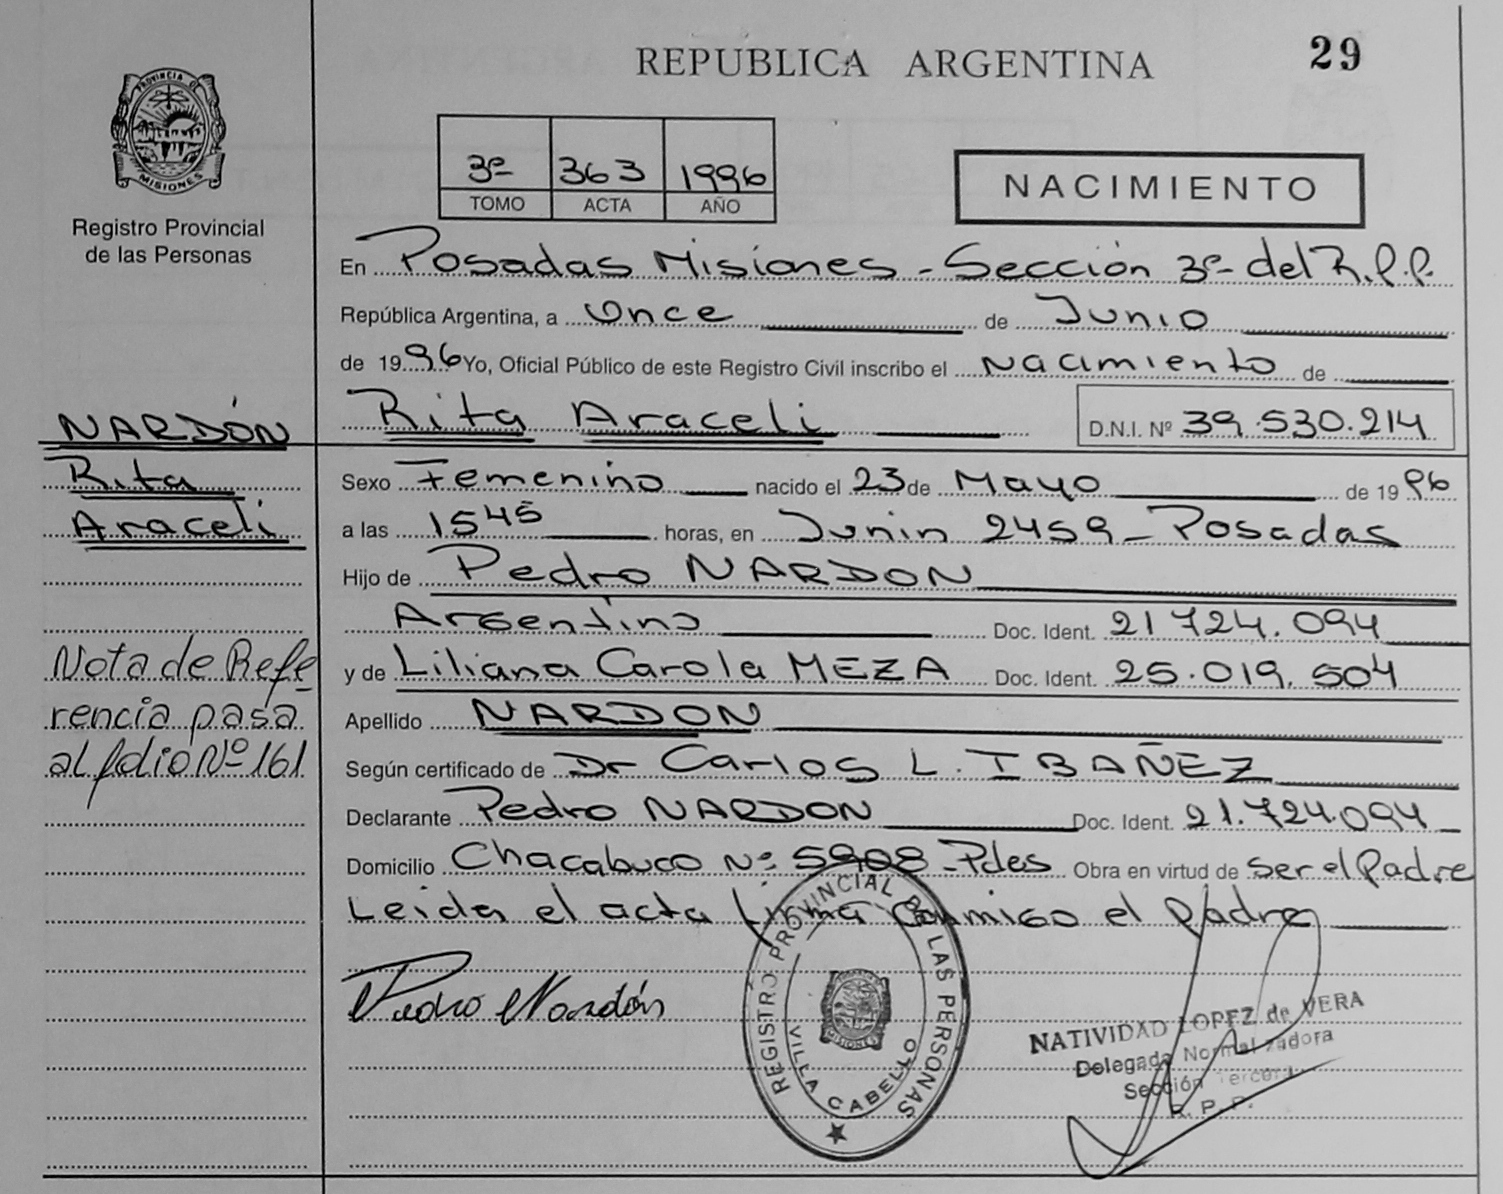 REPUBLICA ARGENTINA
29
PROVINCIA DE
MISIONES
Registro Provincial
de las Personas
3º 363 1996
TOMO ACTA AÑO
NACIMIENTO
En Posadas Misiones - Sección 3º- del R.P.P.
República Argentina, a Once de Junio
de 1996 Yo, Oficial Público de este Registro Civil inscribo el Nacimiento de
Rita Araceli D.N.I. Nº 39.530.214
NARDÓN
Rita
Araceli
Sexo Femenino nacido el 23 de Mayo de 1996
a las 1545 horas, en Junin 2459 - Posadas
Hijo de Pedro NARDON
Argentino Doc. Ident. 21724.094
y de Liliana Carola MEZA Doc. Ident. 25.019.504
Apellido NARDON
Nota de Refe-
rencia pasa
al folio Nº 161
Según certificado de Dr Carlos L. IBAÑEZ
Declarante Pedro NARDON Doc. Ident. 21.724.094
Domicilio Chacabuco Nº 5908 - Pdes Obra en virtud de ser el Padre
Leida el acta firma conmigo el padre
Pedro Nardón
REGISTRO PROVINCIAL DE LAS PERSONAS
VILLA CABELLO
MISIONES
NATIVIDAD LOPEZ de VERA
Delegada Normalizadora
Sección Tercera
R. P. P.